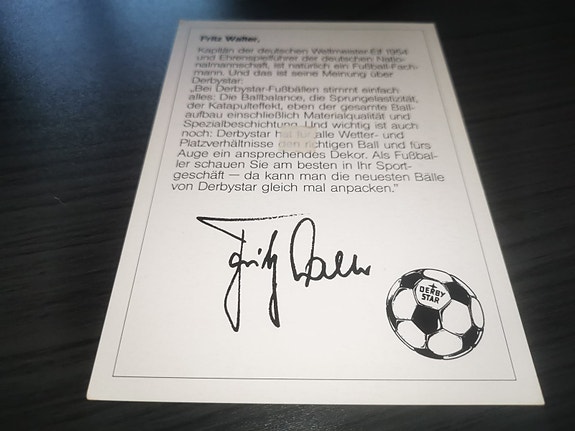 Fritz Walter,
Kapitän der deutschen Weltmeister-Elf 1954
und Ehrenspielführer der deutschen Natio-
nalmannschaft, ist natürlich ein Fußball-Fach-
mann. Und das ist seine Meinung über
Derbystar:
„Bei Derbystar-Fußbällen stimmt einfach
alles: Die Ballbalance, die Sprungelastizität,
der Katapulteffekt, eben der gesamte Ball-
aufbau einschließlich Materialqualität und
Spezialbeschichtung. Und wichtig ist auch
noch: Derbystar hat für alle Wetter- und
Platzverhältnisse den richtigen Ball und fürs
Auge ein ansprechendes Dekor. Als Fußbal-
ler schauen Sie am besten in Ihr Sport-
geschäft – da kann man die neuesten Bälle
von Derbystar gleich mal anpacken.“
Fritz Walter
DERBY
STAR